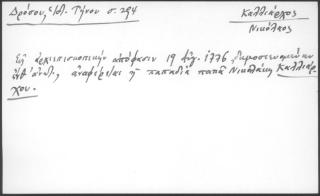 Δρόσου, Ἱστ. Τήνου σ. 294
Καλλιάρχος
Νικόλαος
Εἰς ἀρχιεπισκοπικὴν ἀπόφασιν 19 Αὐγ. 1776, δημοσιευομένην
ἀναφέρεται ἡ παπαδιὰ παπᾶ Νικολάκη Καλλιάρ
χου.